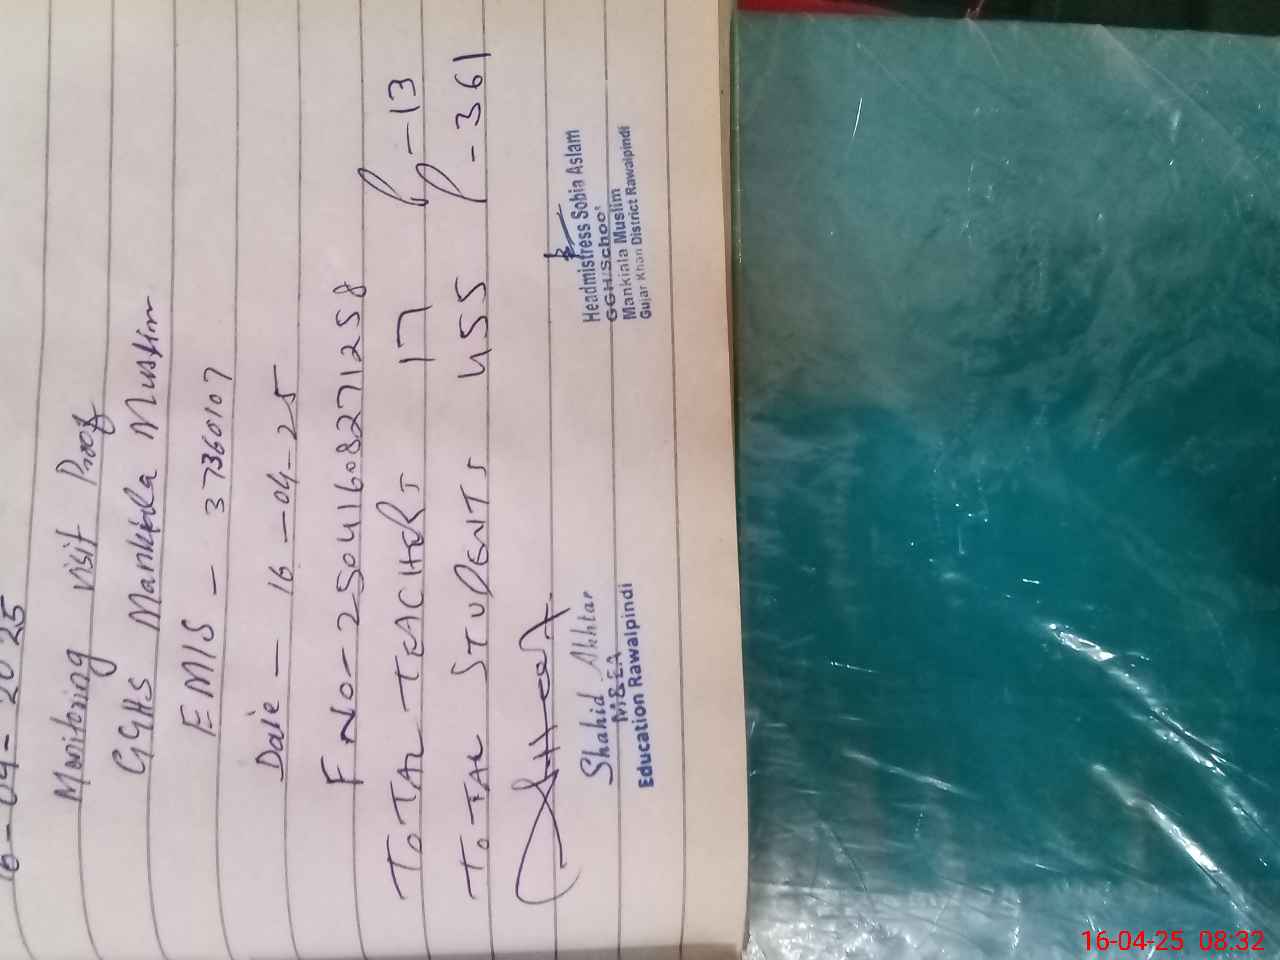 16-04-2025
Monitoring visit Proof
GGHS Mankiala Muslim
EMIS - 37360107
Date - 16-04-25
F No- 25041608271258
TOTAL TEACHERS 17 P-13
TOTAL STUDENTS 455 P-361
Shahid Akhtar
M&EA
Education Rawalpindi
Headmistress Sobia Aslam
GGH/School
Mankiala Muslim
Gujar Khan District Rawalpindi
16-04-25 08:32